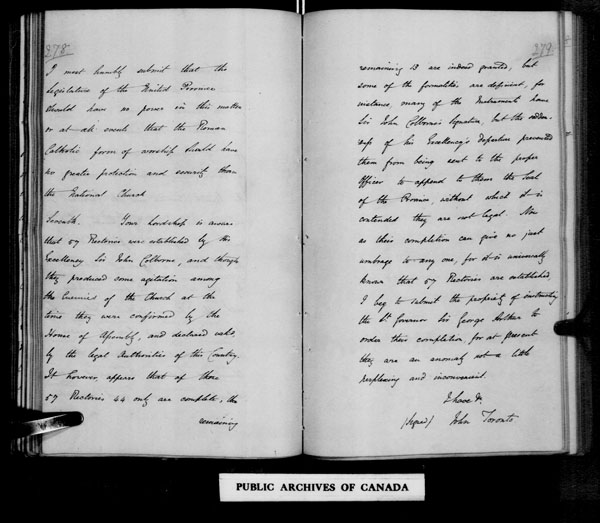 278
I most humbly submit that the
Legislature of the United Province
should have no power in this matter
or at all events that the Roman
Catholic form of worship should have
no greater protection and security than
the National Church
Seventh. Your Lordship is aware
that 57 Rectories were established by His
Excellency Sir John Colborne, and though
they produced some agitation among
the Enemies of the Church at the
time they were confirmed by the
House of Assembly, and declared valid
by the legal Authorities of this Country.
It however, appears that of those
57 Rectories 44 only are complete, the
remaining
279
remaining 13 are indeed granted, but
some of the formalities are deficient, for
instance, many of the Instruments have
Sir John Colborne's signature, but the sudden-
ness of his Excellency's departure prevented
them from being sent to the proper
Officer to append to them the Seal
of the Province, without which it is
contended they are not legal. Now
as their completion can give no just
umbrage to any one, for it is universally
known that 57 Rectories are established,
I beg to submit the propriety of instructing
the Lt. Governor Sir George Arthur to
order their completion, for at present
they are an anomaly not a little
perplexing and inconvenient.
I have &c.
(Signed) John Toronto
PUBLIC ARCHIVES OF CANADA